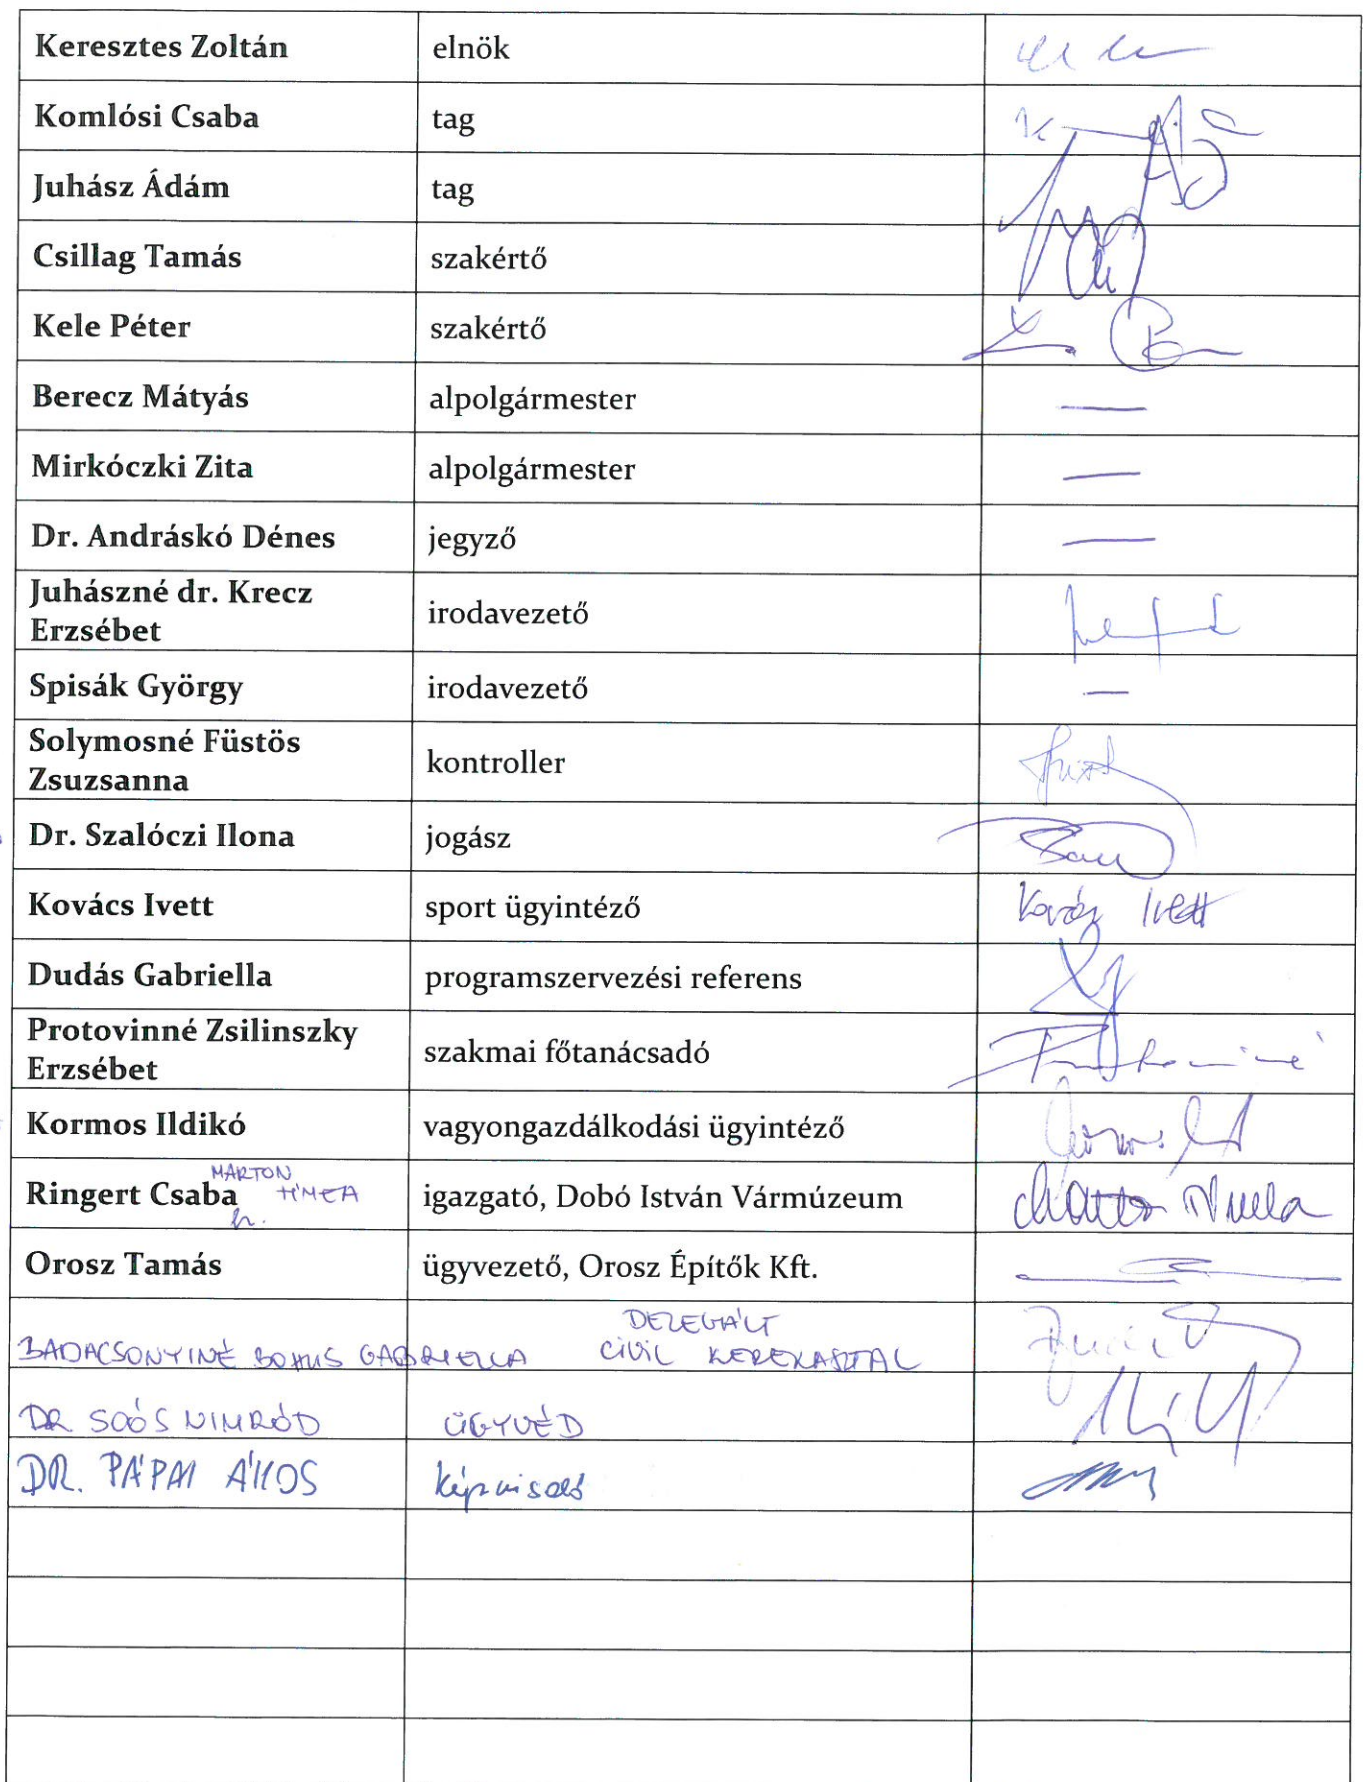 Keresztes Zoltán elnök
Komlósi Csaba tag
Juhász Ádám tag
Csillag Tamás szakértő
Kele Péter szakértő
Berecz Mátyás alpolgármester —
Mirkóczki Zita alpolgármester —
Dr. Andráskó Dénes jegyző —
Juhászné dr. Krecz
Erzsébet irodavezető
Spisák György irodavezető —
Solymosné Füstös
Zsuzsanna kontroller
Dr. Szalóczi Ilona jogász
Kovács Ivett sport ügyintéző Kovács Ivett
Dudás Gabriella programszervezési referens
Protovinné Zsilinszky
Erzsébet szakmai főtanácsadó
Kormos Ildikó vagyongazdálkodási ügyintéző
MARTON TÍMEA
Ringert Csaba igazgató, Dobó István Vármúzeum
h.
Orosz Tamás ügyvezető, Orosz Építők Kft.
DELEGÁLT
BADACSONYINÉ BOHUS GABRIELLA CIVIL KEREKASZTAL
DR SOÓS NIMRÓD ÜGYVÉD
DR. PÁPAI ÁKOS képviselő